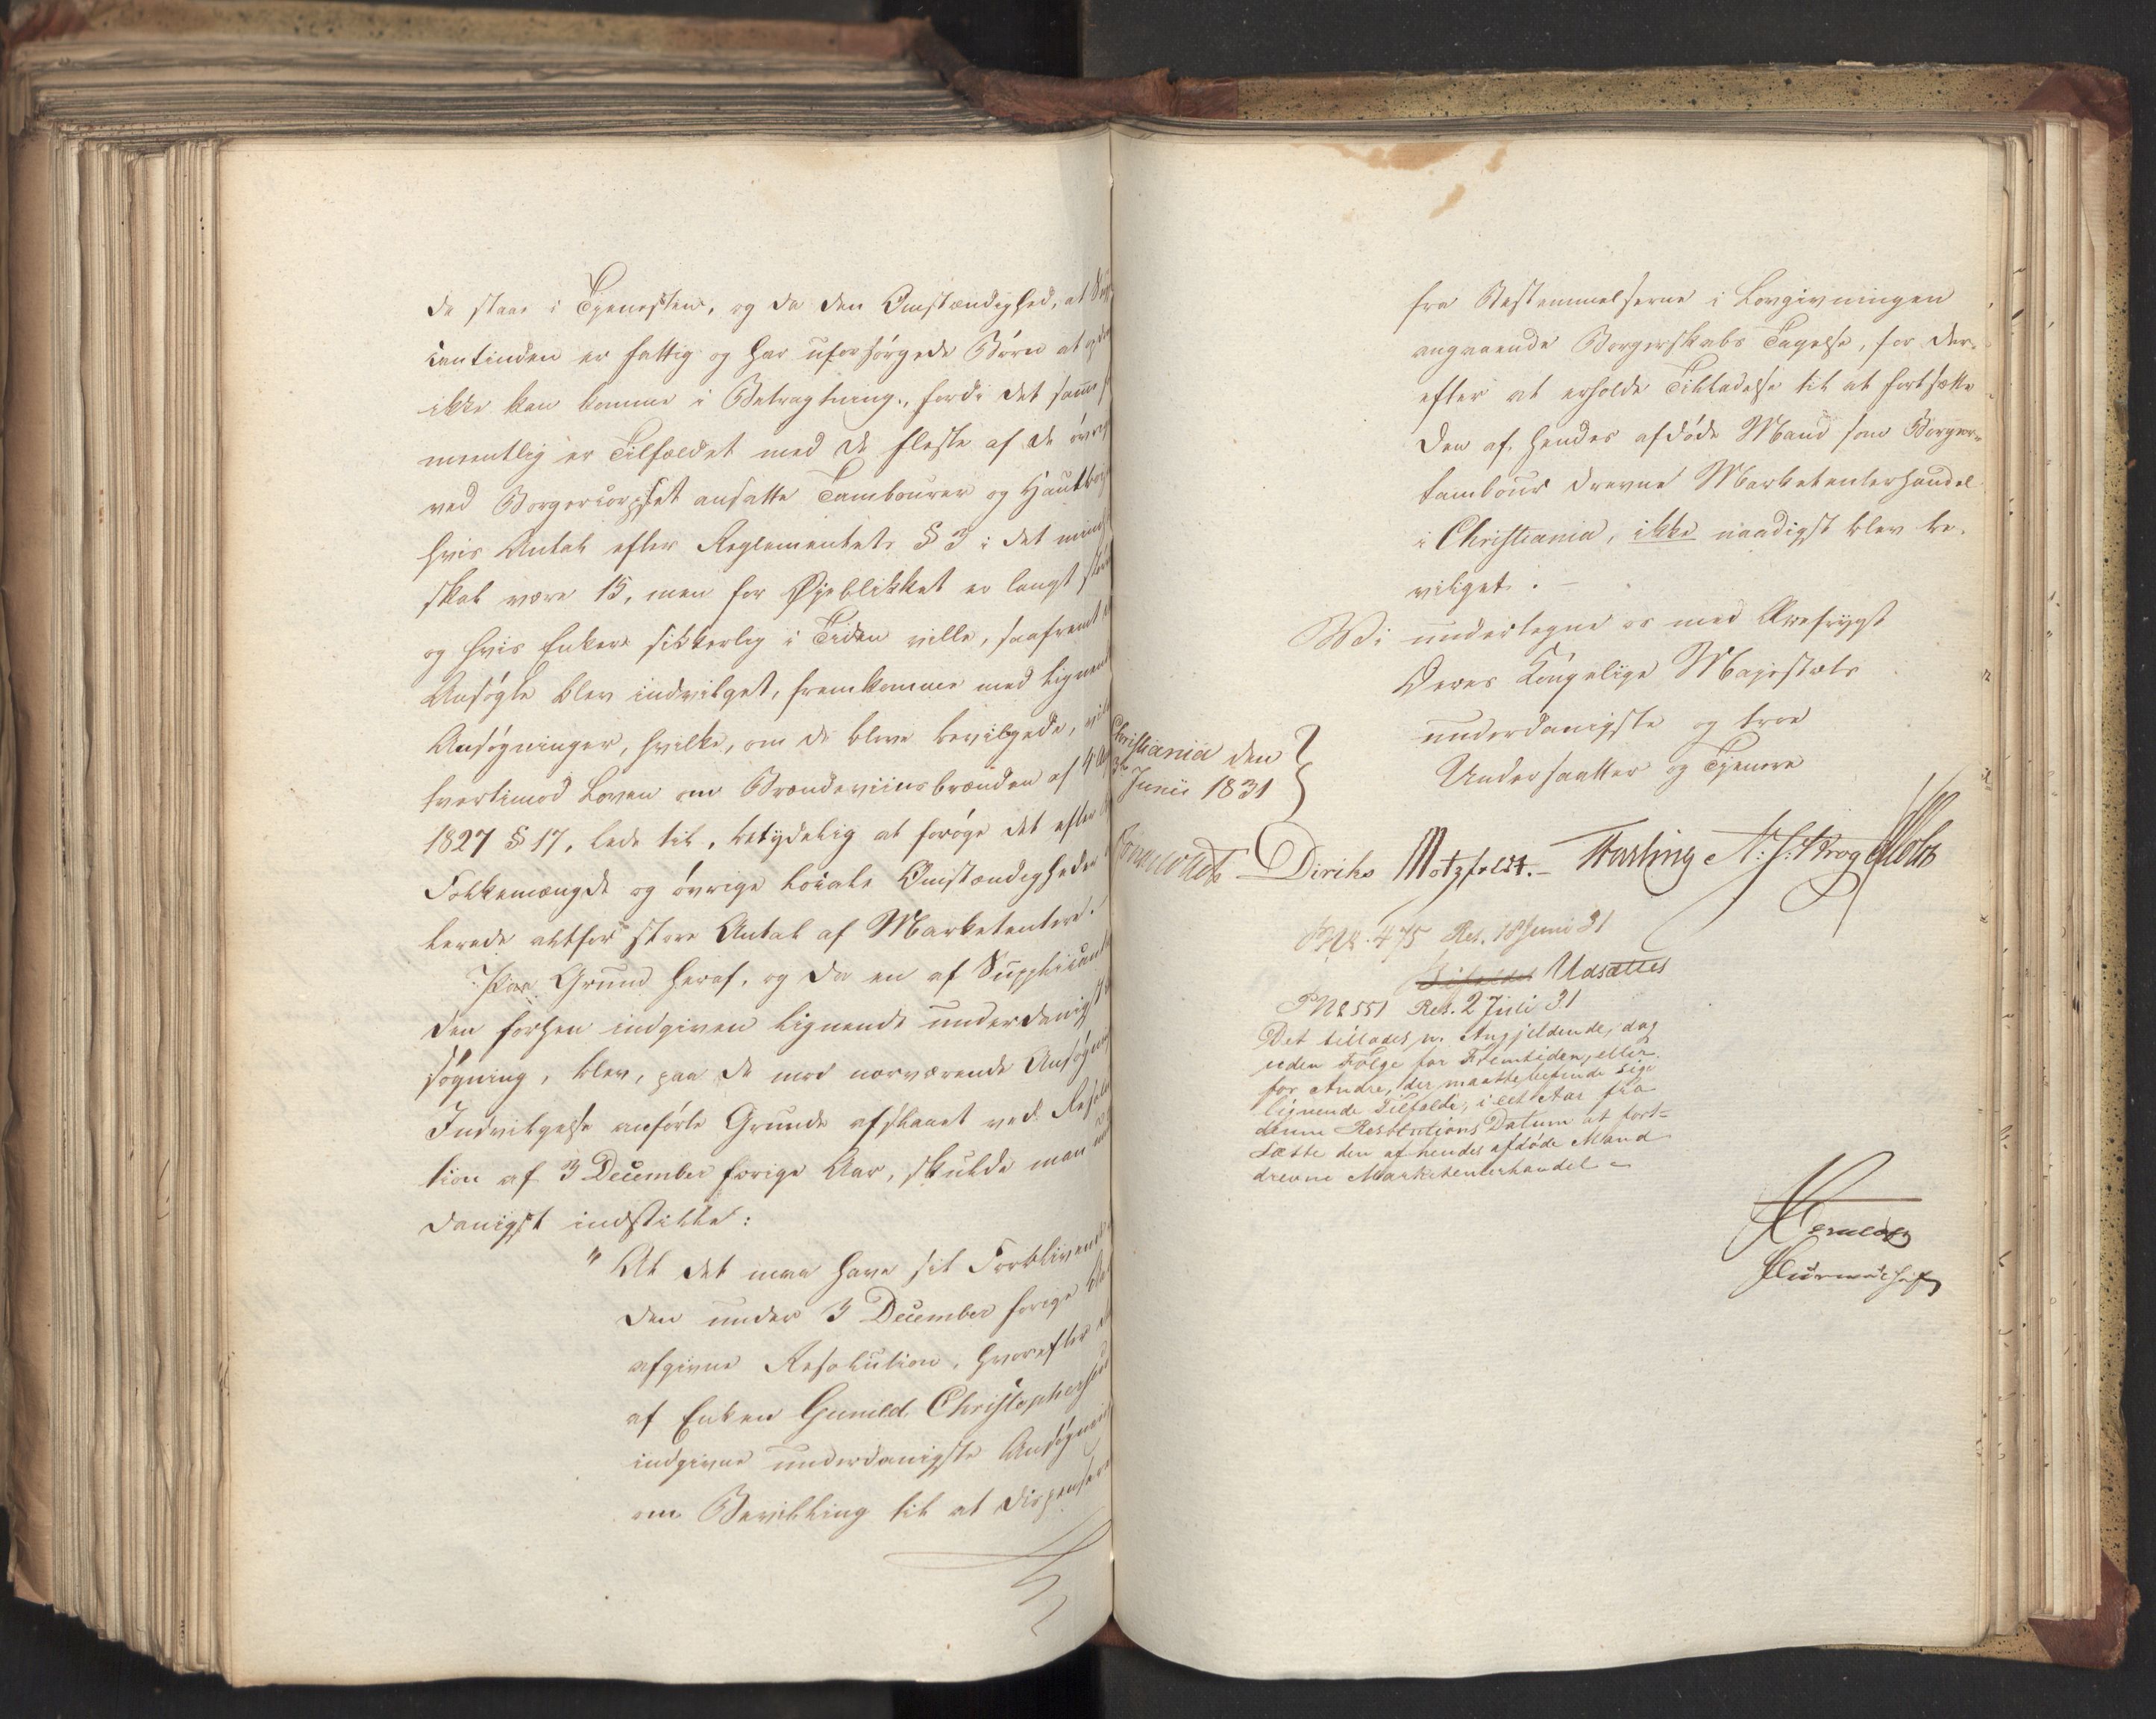 de staae i Tjenesten, og da den Omstændighed, at Supp
licantinden er fattig og har uforsørgede Børn at
ikke kan komme i Betragtning, fordi det samme
mentlig er Tilfældet med de fleste af de øvrige
ved Borgercorpset ansatte Tambourer og Hautbo
hvis Antal efter Reglementets § 3 i det mindste
skal være 15, men for Øjeblikket er langt større
og hvis Enker sikkerlig i Tiden ville, saafremt
Ansøgte blev indvilget, fremkomme med lignende
Ansøgninger, hvilke, om de bleve bevilgede, vil
tvertimod Loven om Brændeviinsbrænden af 4
1827 § 17, lede til, betydelig at forøge det efter
Folkemængde og øvrige locale Omstændigheder
lerede altfor store Antal af Marketentere.
Paa Grund heraf, og da en af Supplicant
den forhen indgiven lignende underdanigst
søgning, blev, paa de mod nærværende Ansøgnings
Indvilgelse anførte Grunde afslaaet ved Resolu
tion af 3 December forige Aar, skulde man
danigst indstille:
" At det maa have sit Forblivende
den under 3 December forige
afgivne Resolution, hvorefter
af Enken Gunild Christophersen
indgivne underdanigste Ansøgning
om Bevilling til at dispensere
fra Bestemmelserne i Lovgivningen
angaaende Borgerskabs Tagelse, for der-
efter at erholde Tilladelse til at fortsætte
den af hendes afdøde Mand som Borger-
tambour drevne Marketenterhandel
i Christiania, ikke naadigst blev be-
vilget. –
Wi undertegne os med Ærefrygt
Deres Kongelige Majestæts
underdanigste og troe
Undersaatter og Tjenere
Christiania den
Junii 1831
Diriks Motzfeldt. – Fasting N: J: Krog Holst
P No. 475 Res. 18 Juni 31
Udsættes
P No 551 Res. 2 Juli 31
Det tillades n. Angjeldende, dog
uden Følge for Fremtiden, eller
for Andre, der maatte befinde sig i
lignende Tilfælde, i eet Aar fra
denne Resolutions Datum at fort-
sætte den af hendes afdøde Mand
drevne Marketenterhandel –